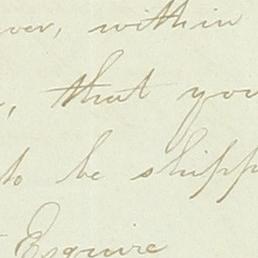 over, within
, that you
to be shipp
Esquire